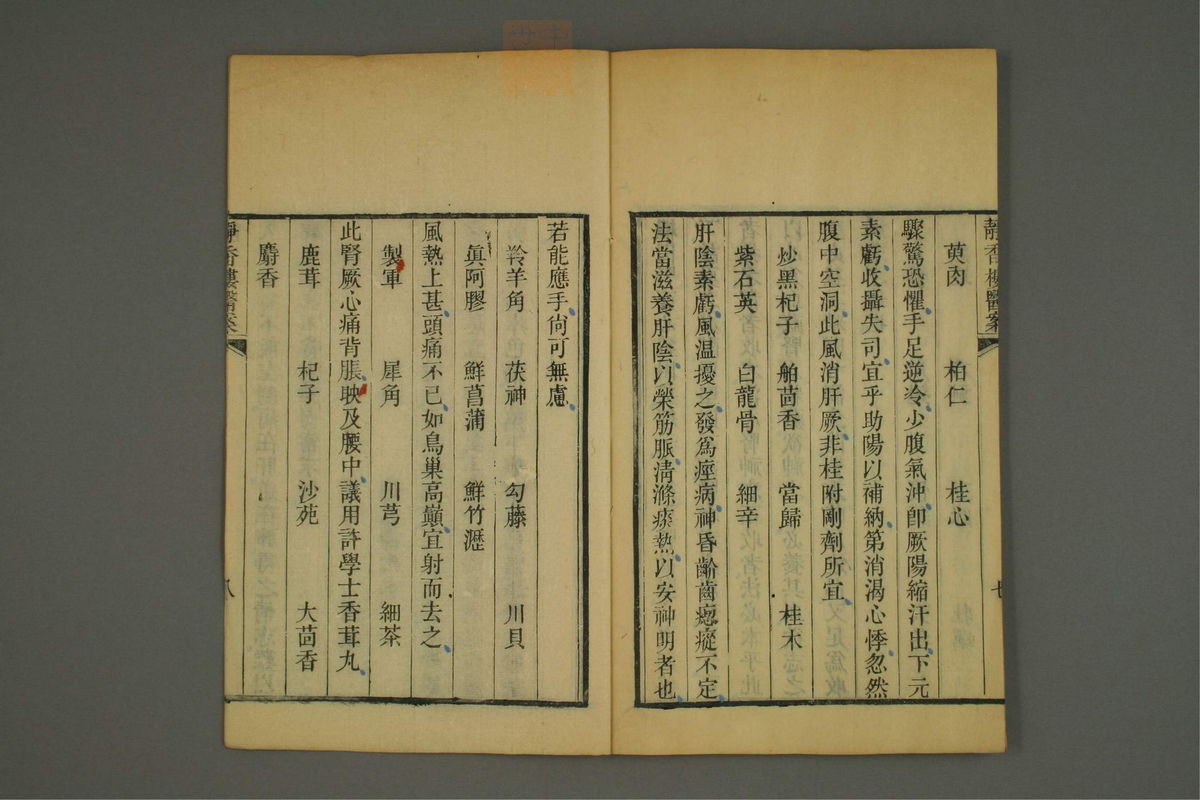 靜香樓醫案
七
萸肉 柏仁 桂心
驟驚恐懼手足逆冷少腹氣沖卽厥陽縮汗出下元
素虧收攝失司宜乎助陽以補納第消渴心悸忽然
腹中空洞此風消肝厥非桂附剛劑所宜
炒黑杞子 舶茴香 當歸 桂木
紫石英 白龍骨 細辛
肝陰素虧風温擾之發爲痙病神昏齘齒瘛瘲不定
法當滋養肝陰以榮筋脈淸滌痰熱以安神明者也
若能應手尙可無慮
羚羊角 茯神 勾藤 川貝
眞阿膠 鮮菖蒲 鮮竹瀝
風熱上甚頭痛不已如鳥巢高巔宜射而去之
製軍 犀角 川芎 細茶
此腎厥心痛背脹映及腰中議用許學士香茸丸
鹿茸 杞子 沙苑 大茴香
麝香
靜香樓醫案
八